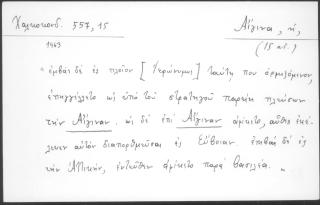 Χαλκοκονδ. 557,15
Αἴγινα, ἡ,
1463
(15 αἰ.)
"ἐμβὰς δὲ ἐς πλοῖον [Ἱερώνυμος] ταύτῃ που ὁρμιζόμενον,
ἐπηγγέλλετο ὡς ὑπὸ τοῦ στρατηγοῦ παρείη πλεύσων
τὴν Αἴγιναν. ὡς δὲ ἐπὶ Αἴγιναν ἀφίκετο, αὖθις ἐκέ-
λευεν αὐτὸν διαπορθμεῦσαι ἐς Εὔβοιαν. ἐπιβὰς δὲ ἐς
τὴν Ἀττικήν, ἐντεῦθεν ἀφίκετο παρὰ βασιλέα. "